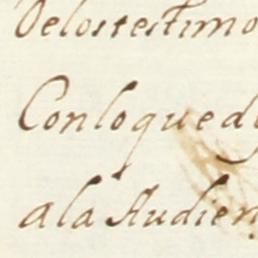 Delostestimo
Conloquedy
ala Audien